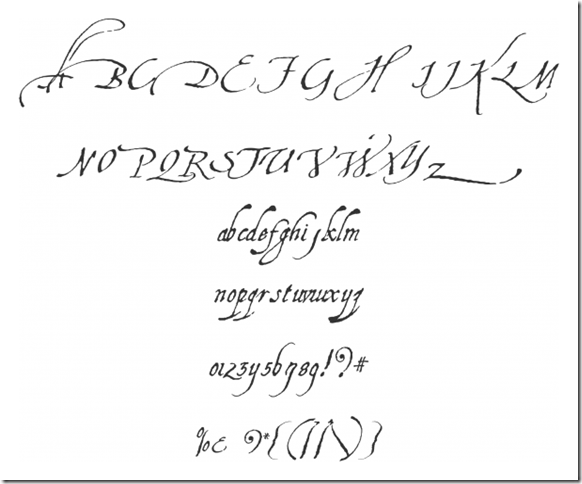 ABCDEFGHIJKLM
NOPQRSTUVWXYZ
abcdefghijklm
nopqrstuvwxyz
0123456789!?#